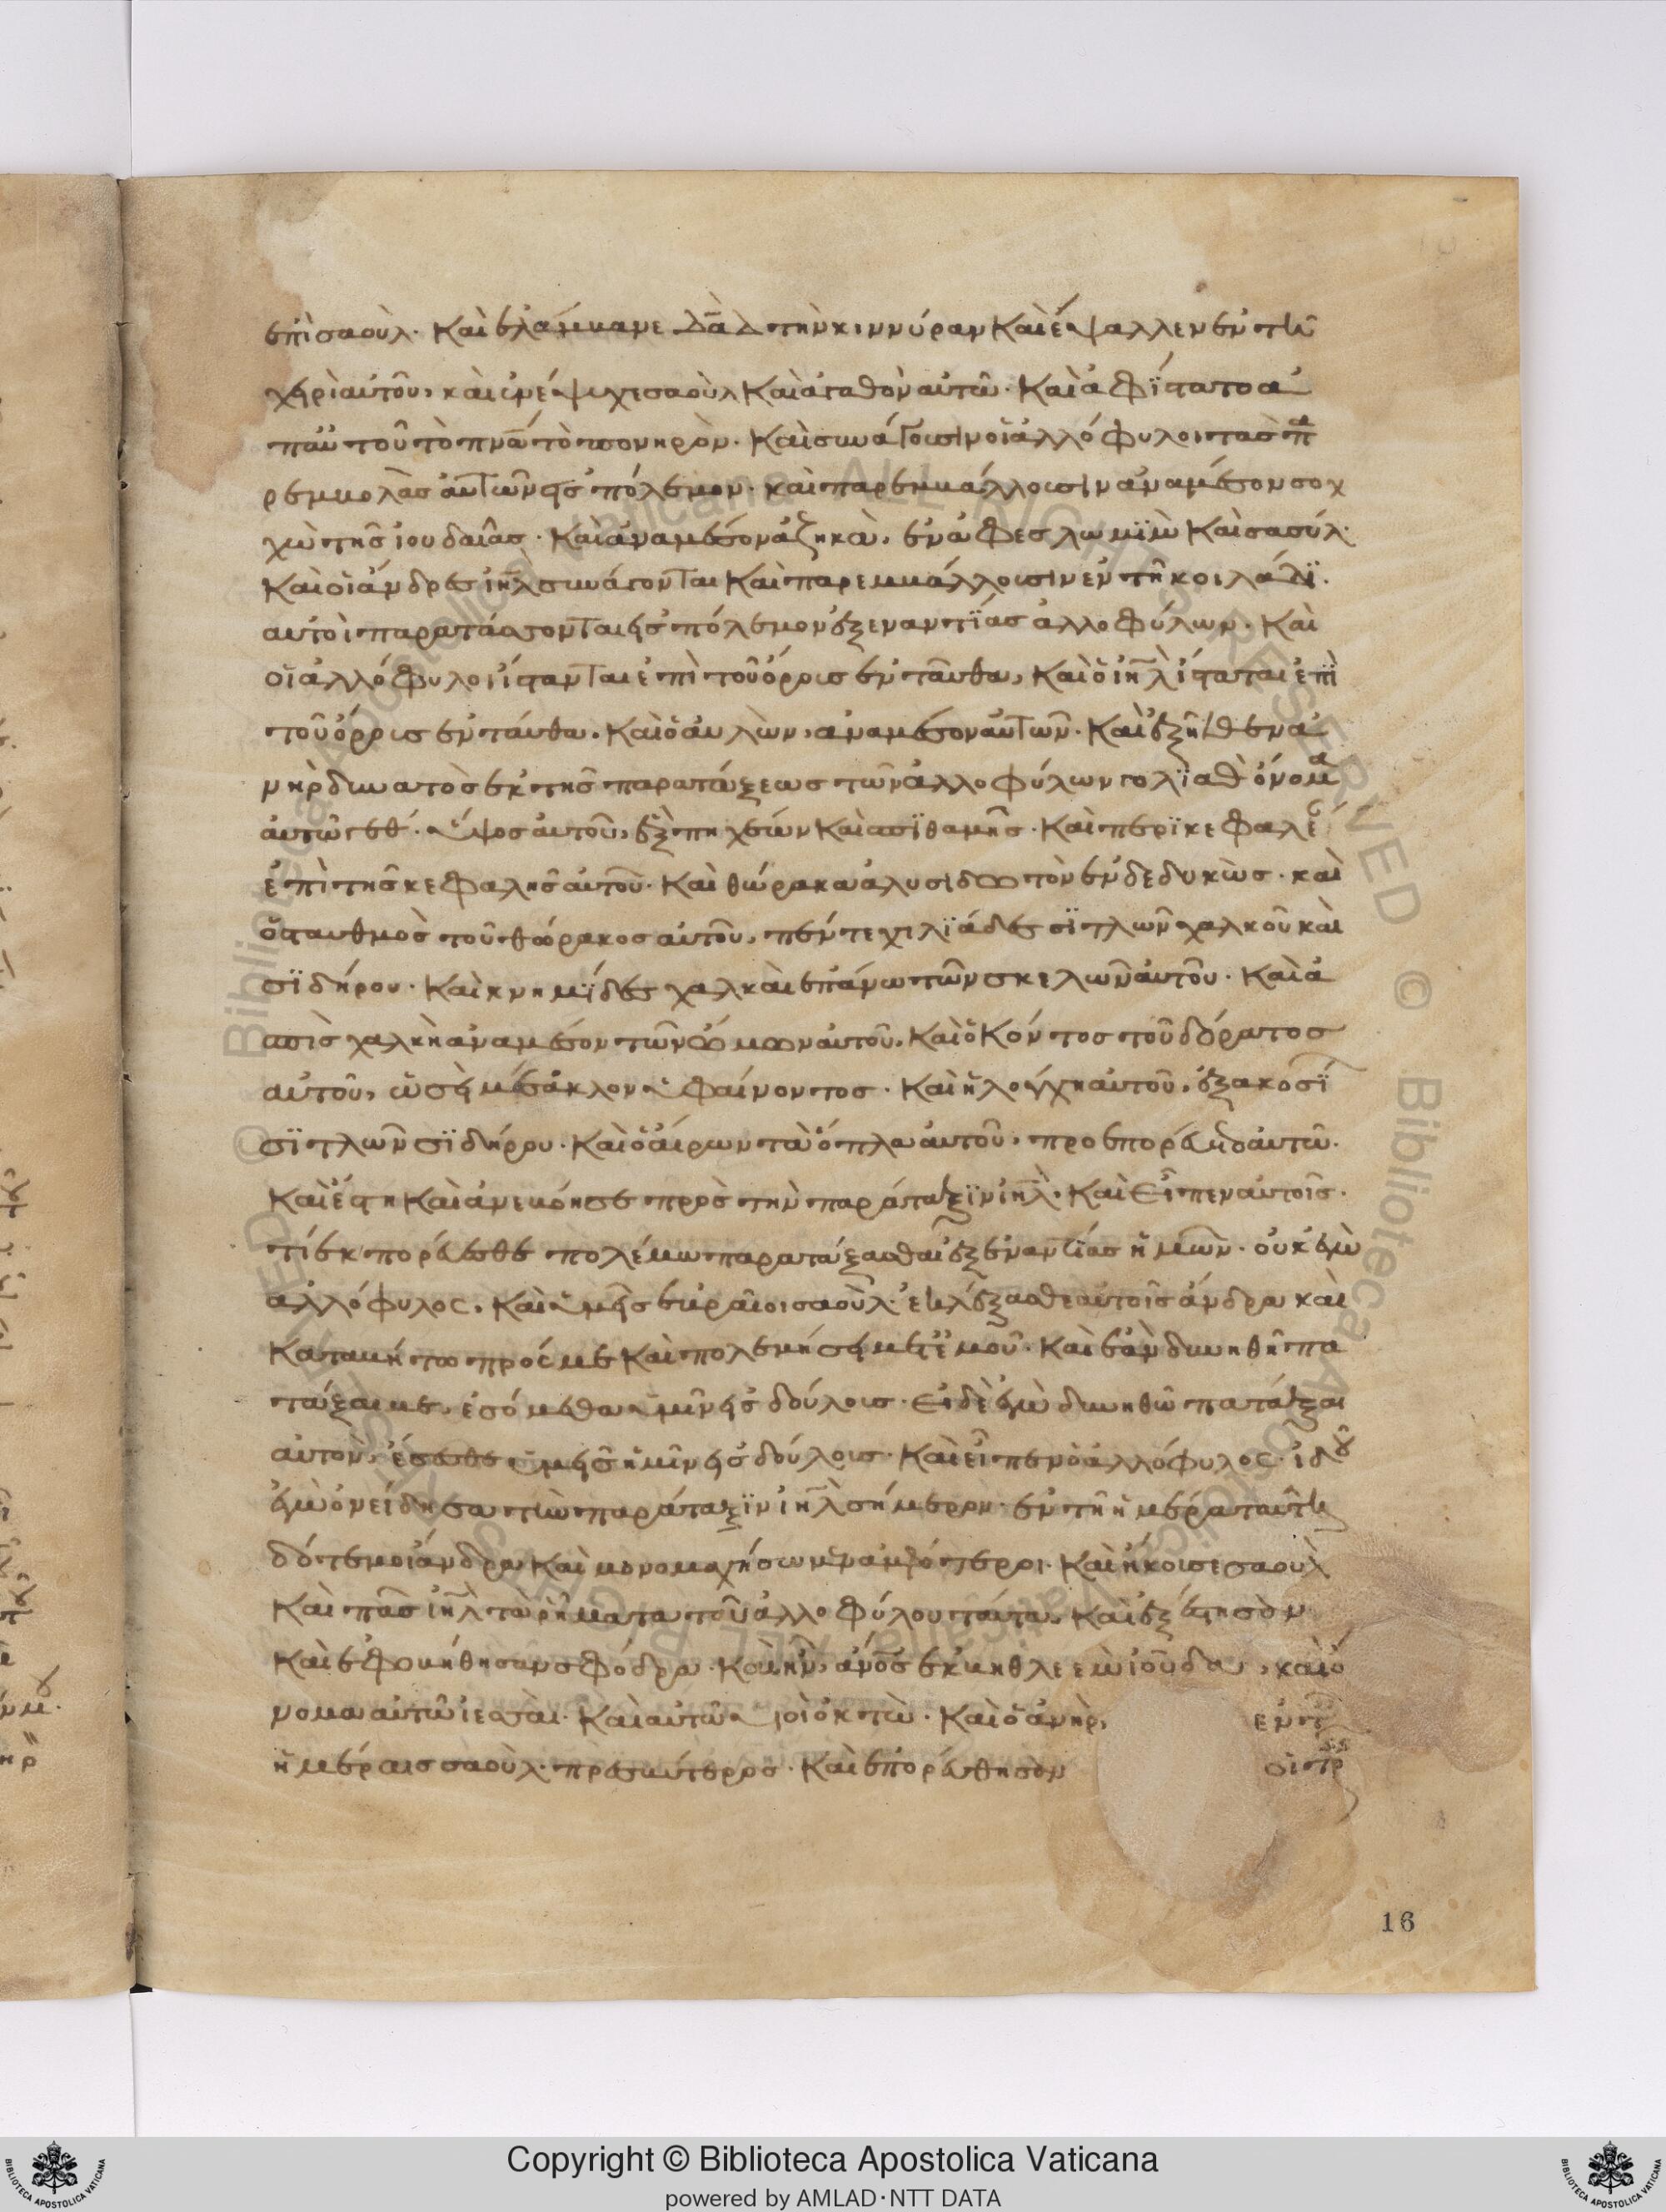 ἐπὶ σαούλ. Καὶ ἐλάμβανε δᾱδ τὴν κιννύραν Καὶ ἔψαλλεν ἐν τῆ
χειρὶ αὐτοῦ, καὶ ἀνέψυχε σαοὺλ Καὶ ἀγαθὸν αὐτῶ. Καὶ ἀφίστατο ἀ
π αὐτοῦ τὸ πνᾱ τὸ πονηρόν. Καὶ συνάγουσιν οἱ ἀλλόφυλοι τὰς πα
ρεμβολὰς αὐτῶν εἰς πόλεμον. καὶ παρεμβάλλουσιν ἀναμέσον σοχ
χὼ τῆς ἰουδαίας. Καὶ ἀναμέσον ἀζηκὰ, ἐν ἀφεσδωμὶμ Καὶ σαούλ.
Καὶ οἱ ἄνδρες ἰηλ συνάγονται Καὶ παρεμβάλλουσιν ἐν τῆ κοιλάδι.
αὐτοὶ παρατάσσονται εἰς πόλεμον ἐξεναντίας ἀλλοφύλων. Καὶ
οἱ ἀλλόφυλοι ἵστανται ἐπὶ τοῦ ὄρους ἐνταῦθα, Καὶ ὁ ἰηλ ἵσταται ἐπὶ
τοῦ ὄρους ἐντάυθα. Καὶ ὁ ἀυλὼν, ἀναμέσον αὐτῶν. Καὶ ἐξῆλθεν ἀ
νὴρ δυνατὸς ἐκ τῆς παρατάξεως τῶν ἀλλοφύλων γολιὰθ ὄνομα
αὐτῶ γέθ. ὕψος αὐτοῦ, ἓξ πηχεών Καὶ σπιθαμῆς. Καὶ περικεφαλέ
ἐπὶ τῆς κεφαλῆς αὐτοῦ. Καὶ θώρακα ἁλυσιδωτὸν ἐνδεδυκὼς. καὶ
ὁ σταυθμὸς τοῦ θώρακος αὐτοῦ, πέντε χιλιάδες σίκλων χαλκοῦ καὶ
σιδήρου. Καὶ κνημίδες χαλκαὶ ἐπάνω τῶν σκελῶν αὐτοῦ. Καὶ ἀ
σπὶς χαλκὴ ἀναμέσον τῶν ὤμων αὐτοῦ, Καὶ ὁ Κόντος τοῦ δόρατος
αὐτοῦ, ὡσεὶ μέσακλον ὑφαίνοντος. Καὶ ἡ λόγχη αὐτοῦ, ἑξακοσί
σίκλων σιδήρου. Καὶ ὁ ἄιρων τὰ ὅπλα αὐτοῦ, προεπορεύετο αὐτῶ.
Καὶ ἔστη Καὶ ἀνεβόησε πρὸς τὴν παράταξιν ἰηλ. Καὶ εἶπεν αὐτοῖς.
τί ἐκπορεύεσθε πολέμω παρατάξασθαι ἐξεναντίας ἡμῶν. οὐκ ἐγὼ
ἀλλόφυλος, Καὶ ὑμεῖς ἑβραῖοι σαούλ. ἐκλέξασθε αὐτοῖς ἄνδρα καὶ
Καταβήτω πρός με Καὶ πολεμήσει μετ ἐμοῦ. Καὶ ἐὰν δυνηθῆ πα
τάξαι με, ἐσόμεθα ὑμῖν εἰς δούλους. Εἰ δὲ ἐγὼ δυνηθῶ πατάξαι
αὐτὸν, ἔσεσθε ὑμεῖς ἡμῖν εἰς δούλους. Καὶ εἶπεν ὁ ἀλλόφυλος. ἰδοῦ
ἐγὼ ὀνείδησα τὴν παράταξιν ἰηλ σήμερον. ἐν τῆ ἡμέρα ταύτη
δότε μοι ἄνδρα Καὶ μονομαχήσωμεν ἀμφότεροι. Καὶ ἤκουσε σαοὺλ
Καὶ πᾶς ἰηλ τὰ ρήματα τοῦ ἀλλοφύλου ταύτα. Καὶ ἐξέστησαν
Καὶ ἐφοβήθησαν σφόδρα. Καὶ ἦν, ἀνος ἐκ βηθλεὲμ ἰούδα, καὶ ὄ
νομα αὐτῶ ἰεσσαί. Καὶ αὐτῶ υἱοὶ ὀκτὼ. Καὶ ὁ ἀνὴρ, ἐν τ
ἡμέραις σαοὺλ πρεσβύτερος. Καὶ ἐπορεύθησαν οἱ τρ